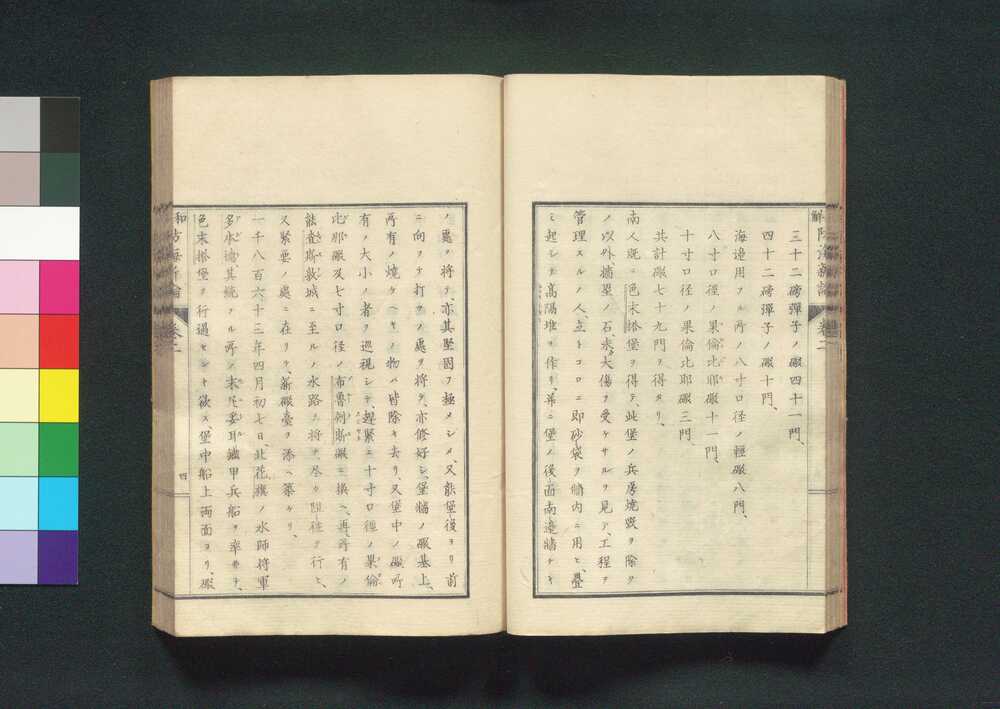 三十二磅彈子ノ礟四十一門、
四十二磅彈子ノ礟十門、
海邊用フル所ノ八寸口徑ノ輕礟八門、
八寸口径ノ果倫比耶礟十一門、
十寸口径ノ果倫比耶礟三門、
共計礟七十九門ヲ得タリ、
南人既ニ色末塔堡ヲ得テ、此堡ノ兵房燒毀ヲ除ク
ノ以外、墻壁ノ石未タ大傷ヲ受ケサルヲ見ア、工程ヲ
管理スルノ人、立トコロニ即砂袋ヲ牆内ニ用ヒ、疊
ミ起シテ高陽堆ヲ作リ、并ニ堡ノ後面南邊牆チキ
ノ處ヲ将テ、亦其堅固ヲ極メシメ、又能堡後ヨリ前
ニ向ヲチ打クノ處ヲ将テ、亦修好シ、堡牆ノ礟基上、
所有ノ燒ケ ノ物ハ皆除キ去リ、又堡中ノ礟所
有ノ大小ノ者ヲ巡視シテ、趕緊ニ十寸口徑ノ果倫
比耶礟及七寸口径ノ布魯例斯礟ニ換ヘ、再所有ノ
査斯敦城ニ至ルノ水路ヲ将テ、尽ク阻 ヲ行ヒ、
又緊要ノ處ニ在リテ、新礟臺ヲ添ヘ築ケリ、
一千八百六十三年四月初七日、北花旗ノ水師将軍
多 、其統フル所ノ末 妥耳鐵甲兵船ヲ率ヰテ、
色末塔堡ヲ行過セント欲ス、堡中船上両面ヨリ、礟
四